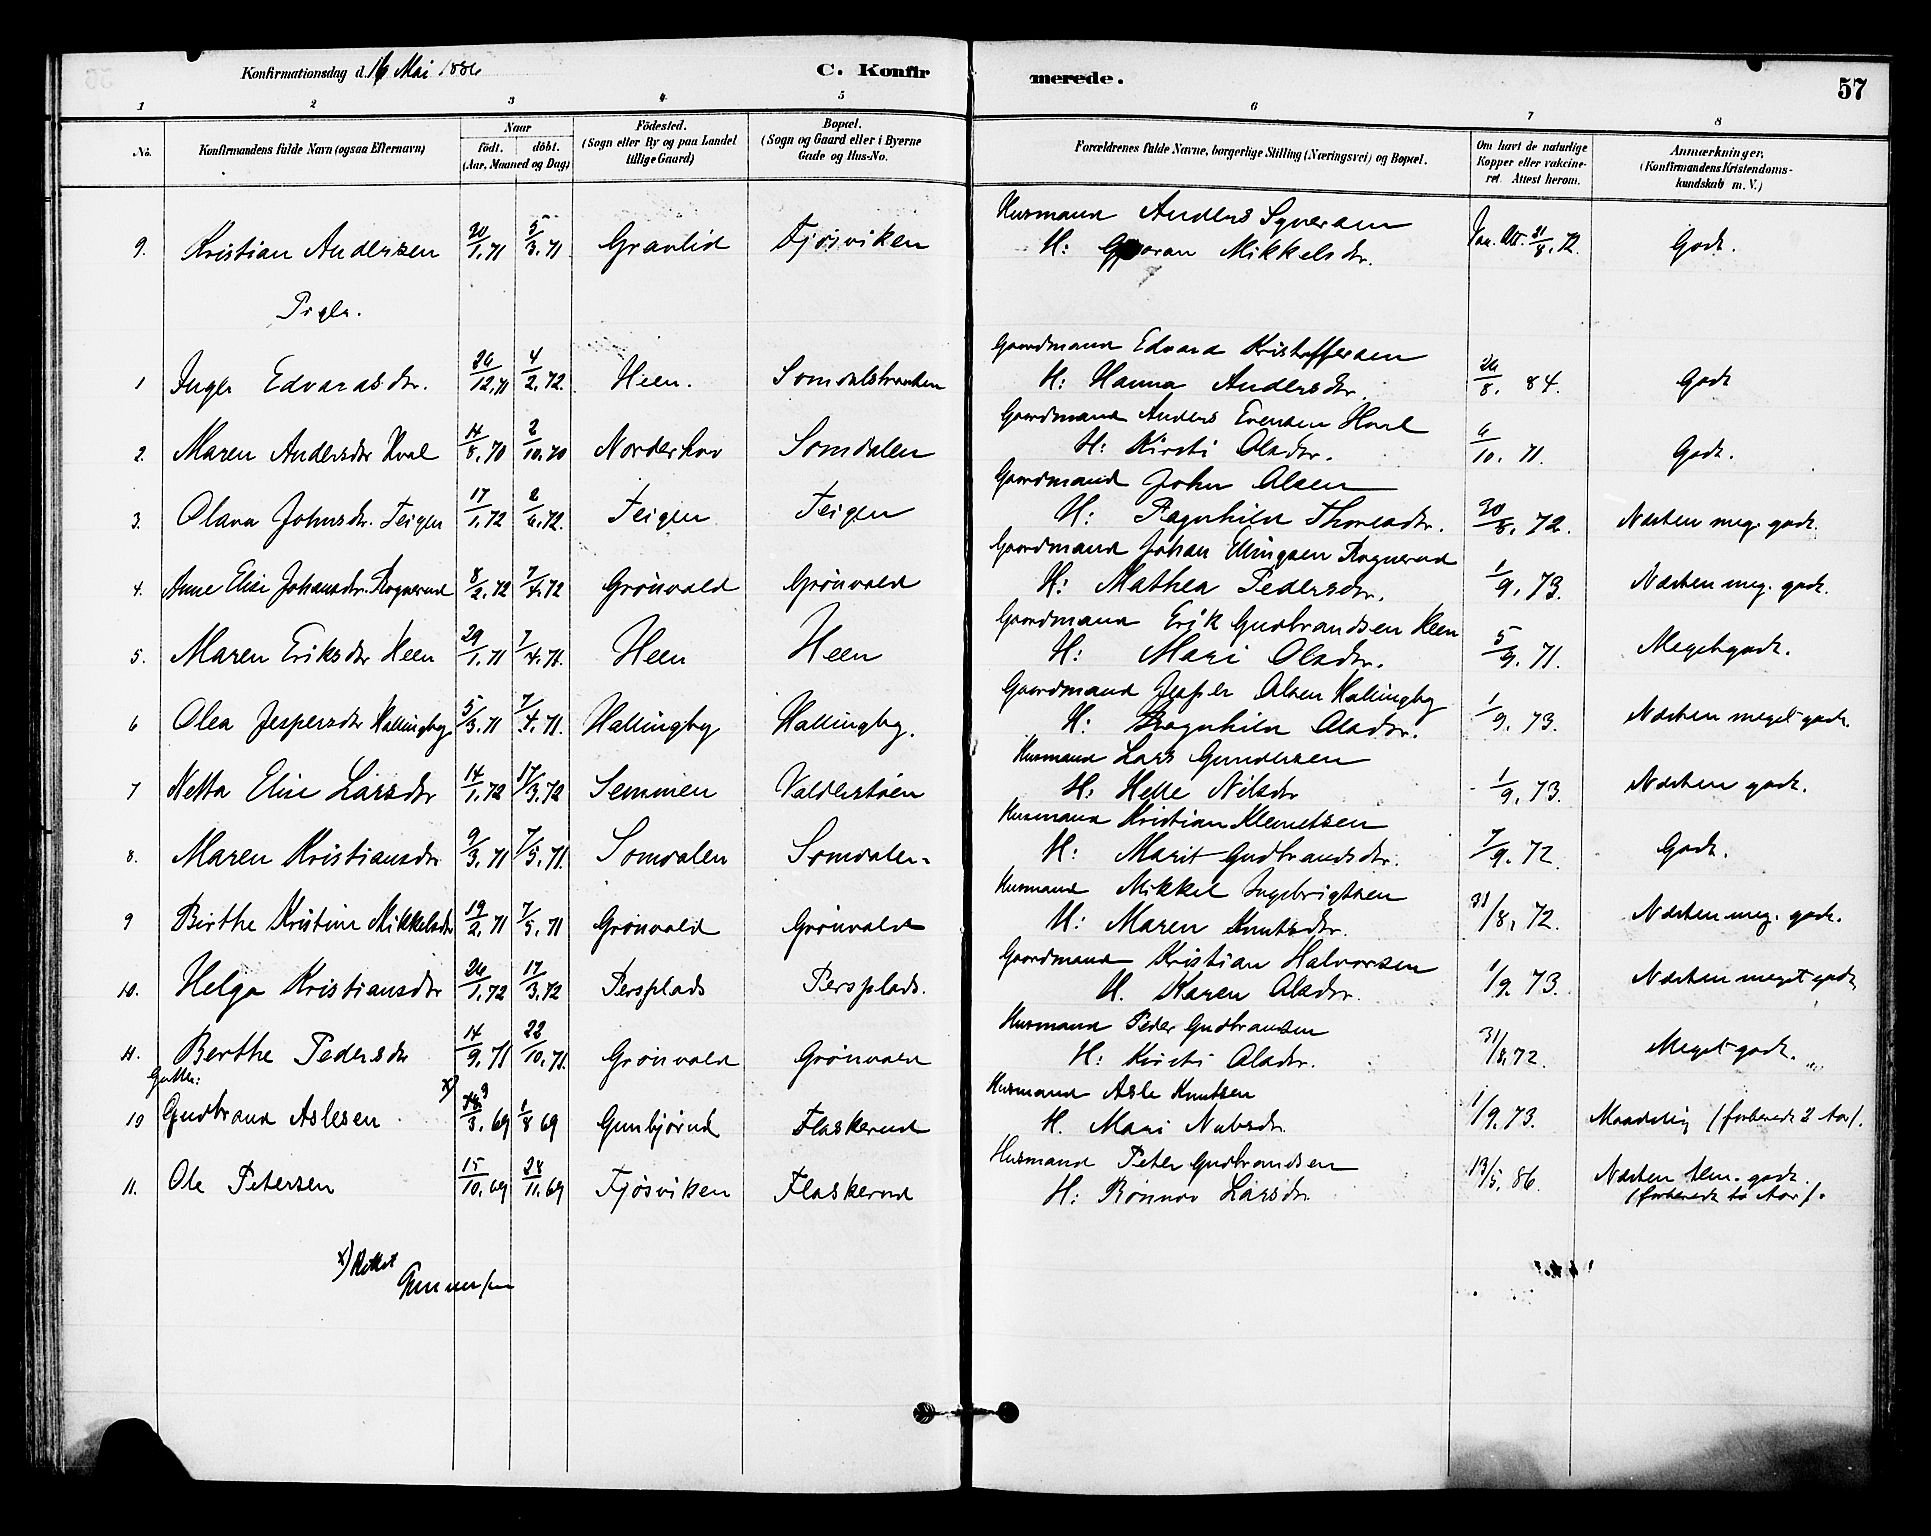 Konfirmationsdag d. 16 Mai 1886
C. Konfirmerede.
57
1 2 3 4 5 6 7 8
No.
Konfirmandens fulde Navn (ogsaa Efternavn)
Naar
födt. döbt.
(Aar, Maaned og Dag)
Födested.
(Sogn eller By og paa Landet
tillige Gaard)
Bopæl.
(Sogn og Gaard eller i Byerne
Gade og Hus-No.
Forældrenes fulde Navne, borgerlige Stilling (Næringsvei) og Bopæl.
Om havt de naturlige
Kopper eller vakcine-
ret. Attest herom.
Anmærkninger,
(Konfirmandens Kristendoms-
kundskab m. V.)
Husmand Anders Syversen
9. Kristian Anderssen 20/1.71 5/3.71 Gravlid Fjøsviken H: Gjøran Mikkelsdr. Vac. Att. 31/8.72. Godt.
Piger.
Gaardmand Edvard Kristoffersen
1 Inger Edvardsdr. 26/12.71 4/2.72 Heen. Somdalsbraaten H: Hanna Andersdr. 26/8. 84. Godt
Gaardmand Anders Evensen Hval
2. Maren Andersdtr Hval 14/8.70 2/10.70 Norderhov Somdalen H: Kirsti Olsdr. 6/10. 71. Godt.
Gaardmand John Olsen
3. Olava Johnsdr. Teigen 17/1.72 2/6.72. Teigen Teigen H: Ragnhild Thoresdr. 30/8. 72. Næsten meg. godt.
Gaardmand Johan Ulrigsen Rognerud
4. Anne Elise Johansdr. Rognerud 8/2.72 7/4.72 Grönvold Grönvold H: Mathea Pedersdr. 1/9. 73. Næsten meg. godt.
Gaardmand Erik Gudbrandsen Heen
5. Maren Eriksdtr Heen 29/1.71 7/4.71. Heen Heen H: Mari Olsdr. 5/9. 71. Meget godt.
Gaardmand Jesper Olsen Hallingby
6 Olea Jespersdtr Hallingby 5/3.71 7/4.71. Hallingby Hallingby. H: Ragnhild Olsdr. 1/9. 73. Næsten meget godt.
Husmand Lars Gundersen
7 Netta Elise Larsdtr 14/1.72 17/3.72 Semmen Valderstøen H: Helle Nilsdr 1/9. 73. Næsten godt.
Husmand Kristian Klemetsen
8. Maren Kristiansdtr 9/3.71 7/5.71. Somdalen Somdalen H: Marit Gudbrandsdr. 7/9. 72. Godt.
Husmand Mikkel Ingebrigtsen
9 Birthe Kristine Mikkelsdtr 19/2.71 7/5.71 Grønvold Grønvold H: Maren Knutsdr. 31/8. 72. Næsten meg. godt.
Gaardmand Kristian Halvorsen
10. Helga Kristiansdtr 26/1.72 17/3.72 Persplads Persplads. H. Karen Olsdr. 1/9. 73. Næsten meget godt
Husmand Peder Gudbransen
11. Berthe Pedersdr 14/9.71 22/10.71. Grönvold Grönvold H: Kirsti Olsdr. 31/8.72. Meget godt.
Gutter:
Husmand Asle Knutsen
10 Gudbrand Aslesen x) 3.69 1/8 69 Gunbjørud Flaskerud H. Mari Nubsdr. 1/9.73. Maadelig (forberedt 2 Aar).
Husmand Peter Gudbrandsen
11. Ole Petersen 15/10.69 28/11.69 Fjøsviken Flaskerud H: Rönnov Larsdr. 13/5. 86. Næsten tem. godt.
(forberedt to Aar).
x) Rettet